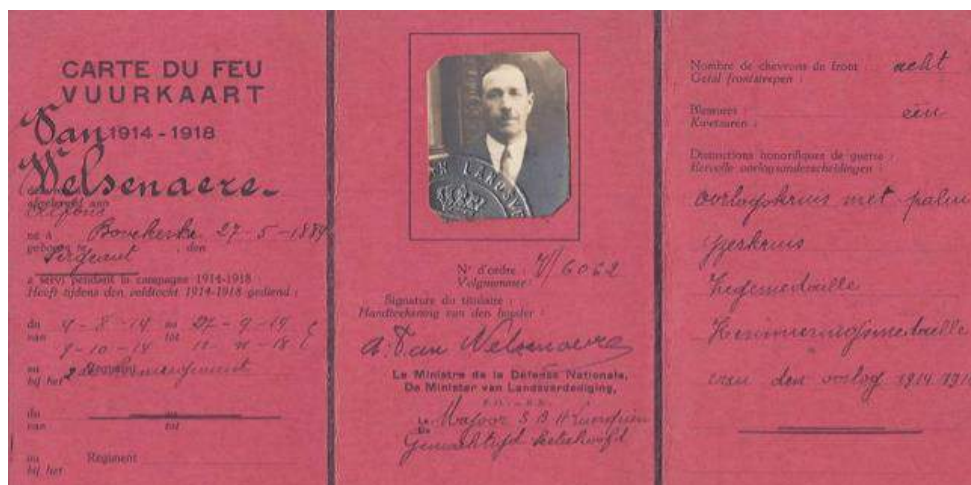 CARTE DU FEU
VUURKAART
1914-1918
Van
Welsenaere
afgeleverd aan
Alfons
né à Bovekerke 27-5-1889
geboren te , den
Sergeant
a servi pendant la campagne 1914-1918 :
Heeft tijdens den veldtocht 1914-1918 gediend :
du 4-8-14 au 27-9-14
van tot
9-10-14 12-11-18
au
bij het
du au
van tot
au Régiment
bij het
LAND
N° d'ordre : V/6062
Volgnummer :
Signature du titulaire :
Handteekening van den houder :
A. Van Welsenaere
Le Ministre de la Défense Nationale,
De Minister van Landsverdediging,
Le Majoor S B H
De
Nombre de chevrons de front : acht
Getal frontstrepen :
Blessures : één
Kwetsuren :
Distinctions honorifiques de guerre :
Eervolle oorlogsonderscheidingen :
oorlogskruis met palm
Yzerkruis
Zegemedaille
Herinneringsmedaille
van den oorlog 1914 1918